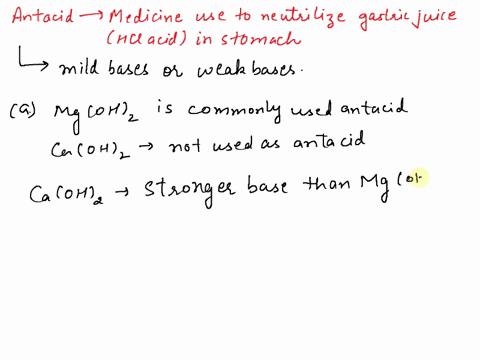 Antacid → Medicine use to neutrilize gastric juice
(HCl acid) in stomach
→ mild bases or weak bases.
(a) Mg(OH)2 is commonly used antacid
Ca(OH)2 → not used as antacid
Ca(OH)2 → Stronger base than Mg(OH